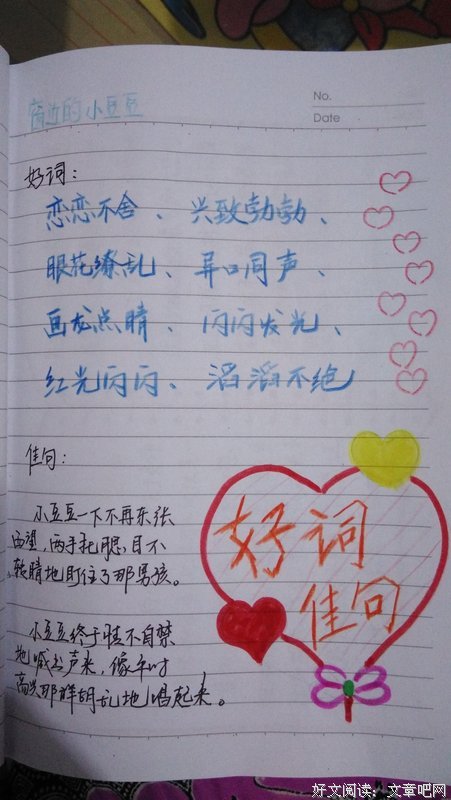 No.
Date
窗边的小豆豆
好词：
恋恋不舍、兴致勃勃、
眼花缭乱、异口同声、
画龙点睛、闪闪发光、
红光闪闪、滔滔不绝
佳句：
小豆豆一下不再东张
西望，两手，目不
转睛地盯住了那男孩。
小豆豆终于情不自禁
地喊出声来，像平时
高兴那样胡乱地唱起来。
好词
佳句
好文阅读：文章吧网